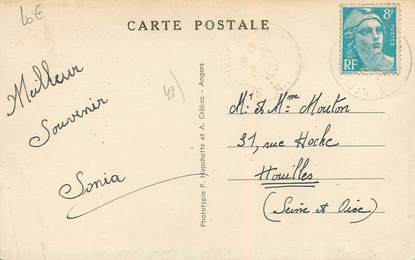 10€
CARTE POSTALE
8F
POSTES
RF
49)
Meilleur
Souvenir
Sonia
Phototype P. Hapchette et A. Crébec - Angers
Mr et Mme Mouton
31, rue Hoche
Houilles
(Seine et Oise)